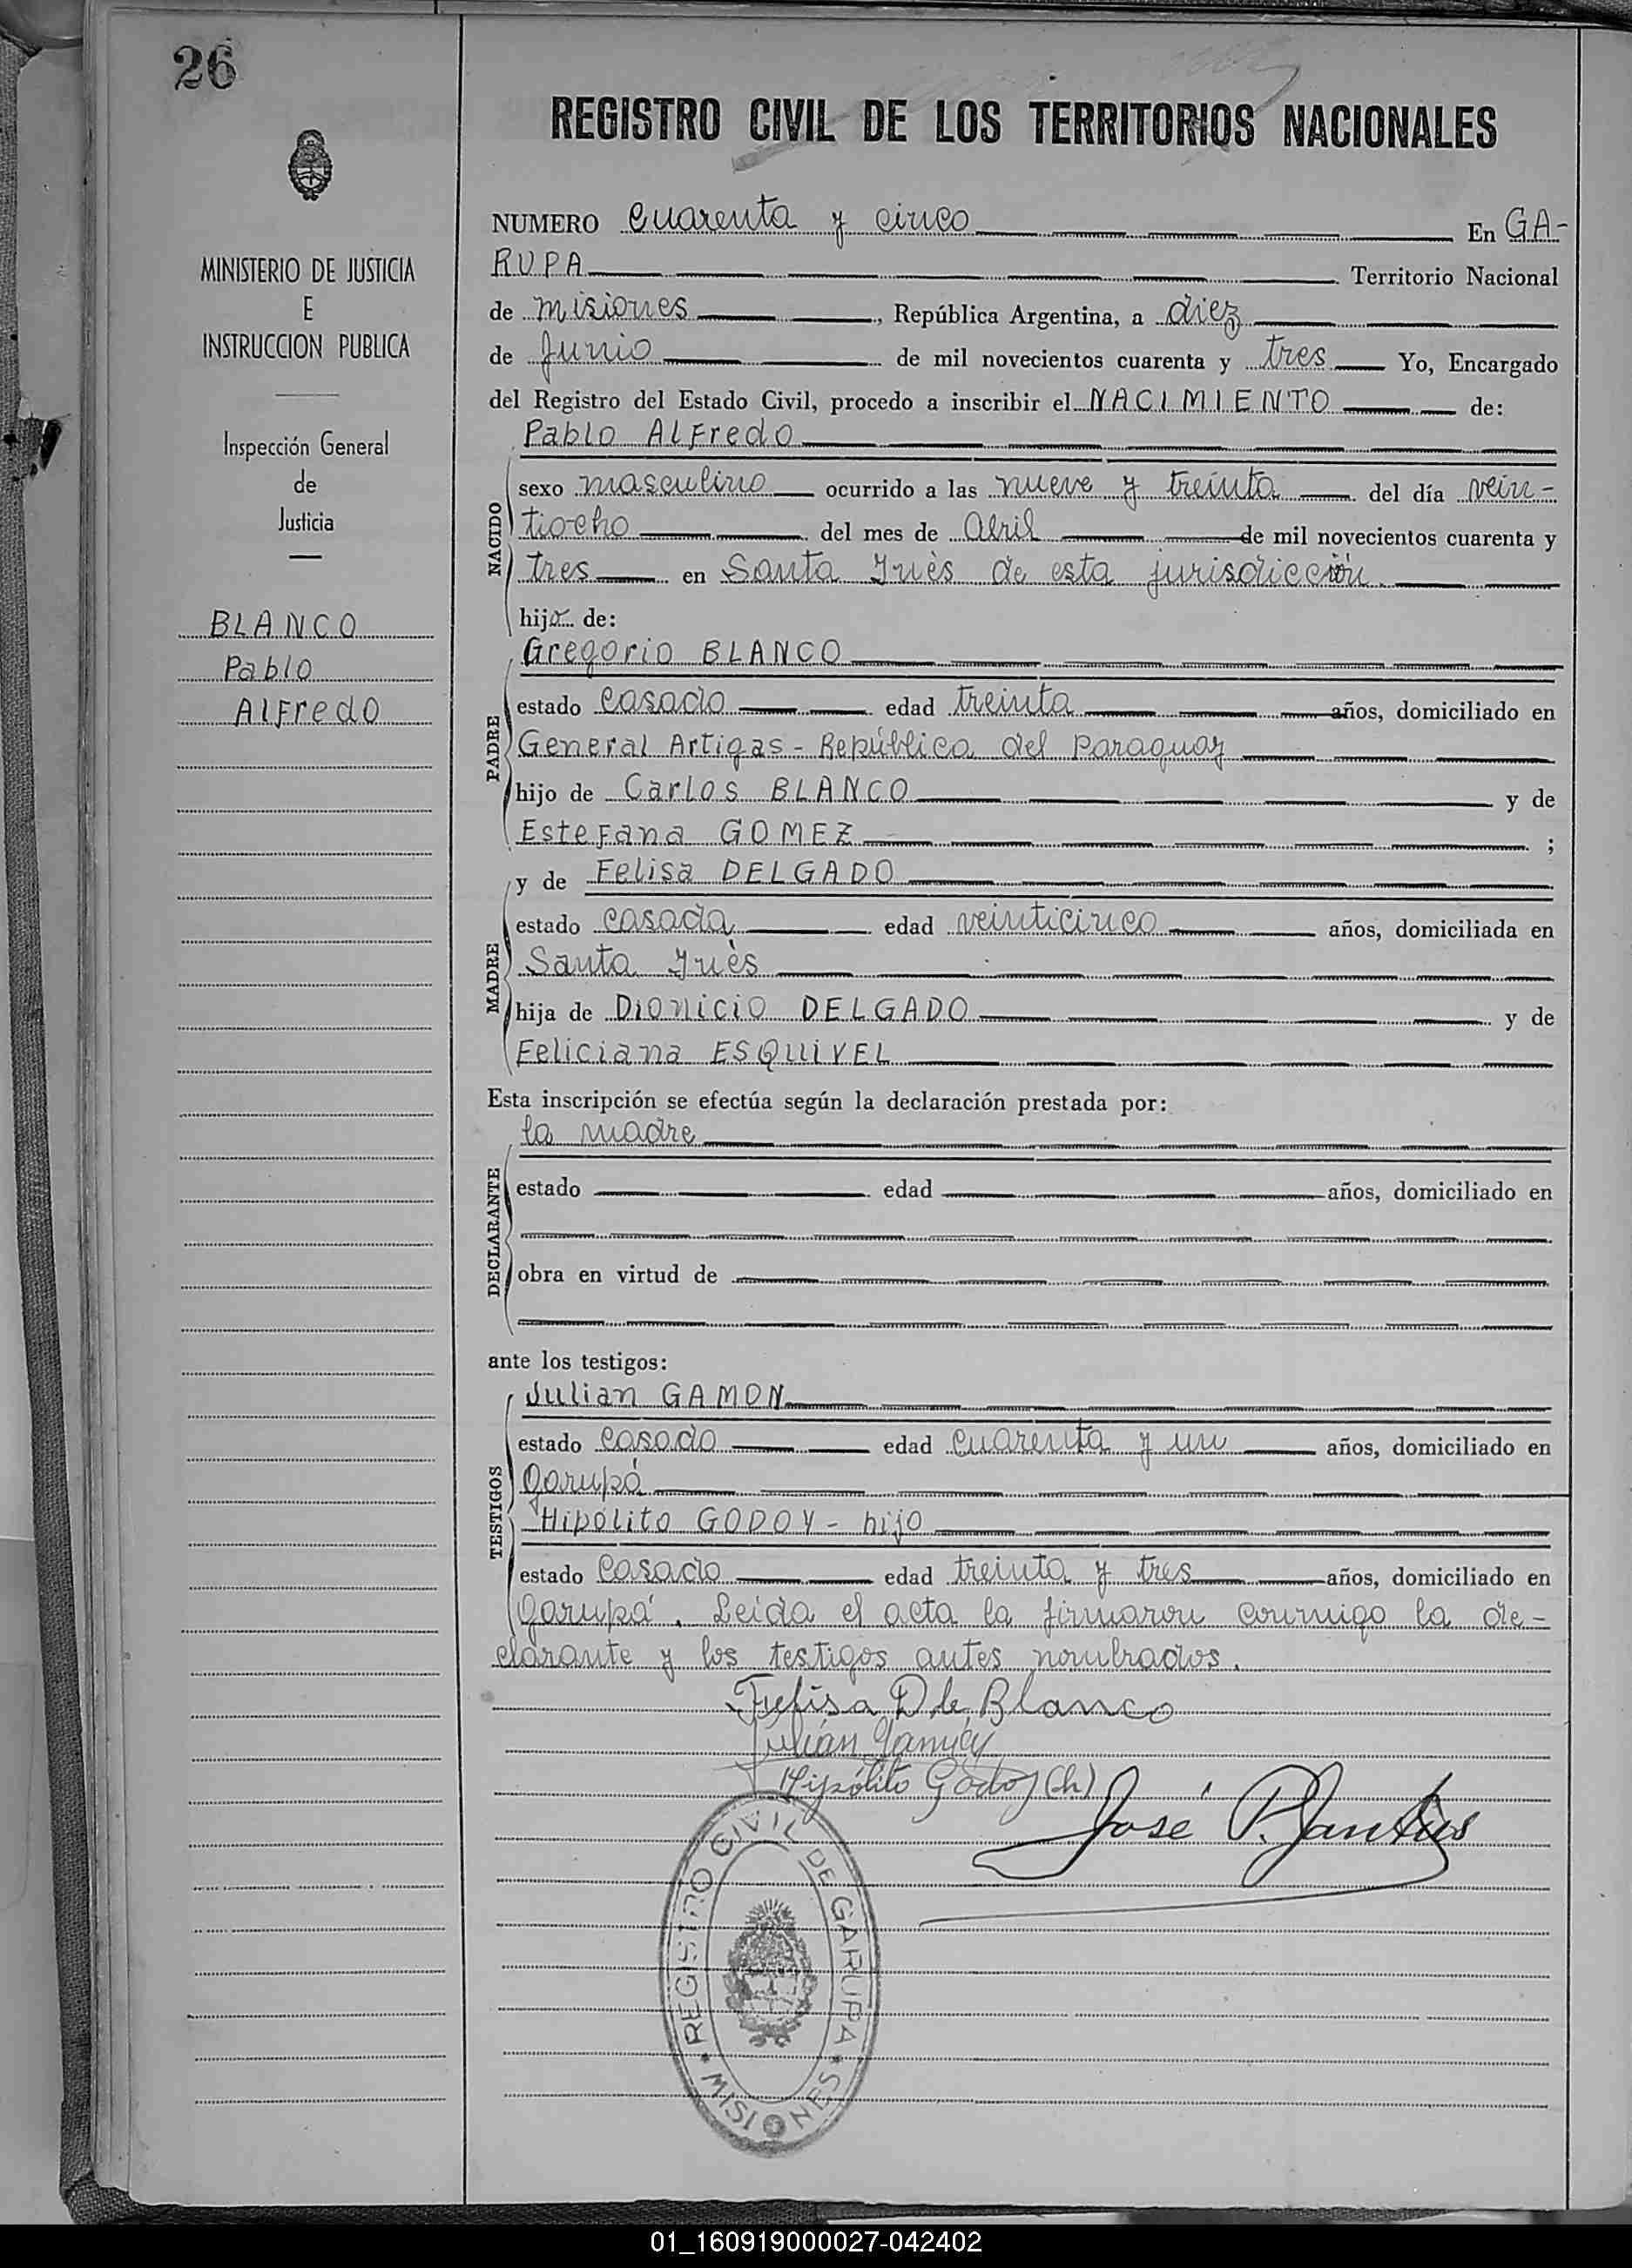 26
MINISTERIO DE JUSTICIA
E
INSTRUCCION PUBLICA
Inspección General
de
Justicia
BLANCO
Pablo
Alfredo
REGISTRO CIVIL DE LOS TERRITORIOS NACIONALES
NUMERO cuarenta y cinco En GA-
RUPA Territorio Nacional
de misiones, República Argentina, a diez
de Junio de mil novecientos cuarenta y tres Yo, Encargado
del Registro del Estado Civil, procedo a inscribir el NACIMIENTO de:
Pablo Alfredo
NACIDO
sexo masculino ocurrido a las nueve y treinta del día vein-
tiocho del mes de Abril de mil novecientos cuarenta y
tres en Santa Inès de esta jurisdicción
hijo de:
Gregorio BLANCO
PADRE
estado casado edad treinta años, domiciliado en
General Artigas - República del Paraguay
hijo de Carlos BLANCO y de
Estefana GOMEZ ;
y de Felisa DELGADO
MADRE
estado casada edad veinticinco años, domiciliada en
Santa Inès
hija de Dionicio DELGADO y de
Feliciana ESQUIVEL
Esta inscripción se efectúa según la declaración prestada por:
la madre
DECLARANTE
estado edad años, domiciliado en
obra en virtud de
ante los testigos:
Julian GAMON
TESTIGOS
estado casado edad cuarenta y un años, domiciliado en
Garupá
Hipólito GODOY - hijo
estado casado edad treinta y tres años, domiciliado en
Garupá. Leida el acta la firmaron conmigo la de-
clarante y los testigos antes nombrados.
Felisa D de Blanco
Julián
Hipólito Godoy (h)
José P.
REGISTRO CIVIL DE GARUPA
MISIONES
01_160919000027-042402